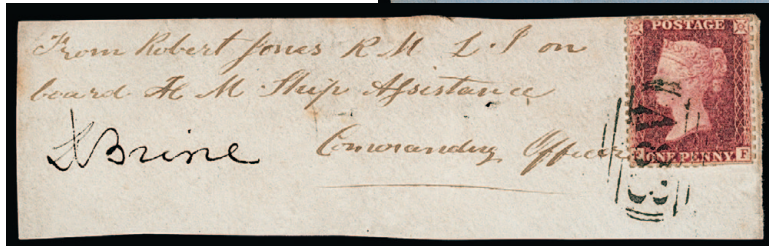 From Robert Jones R M L. I on
board H M Ship Assistance
Brine Commanding Officer
POSTAGE
ONE PENNY F